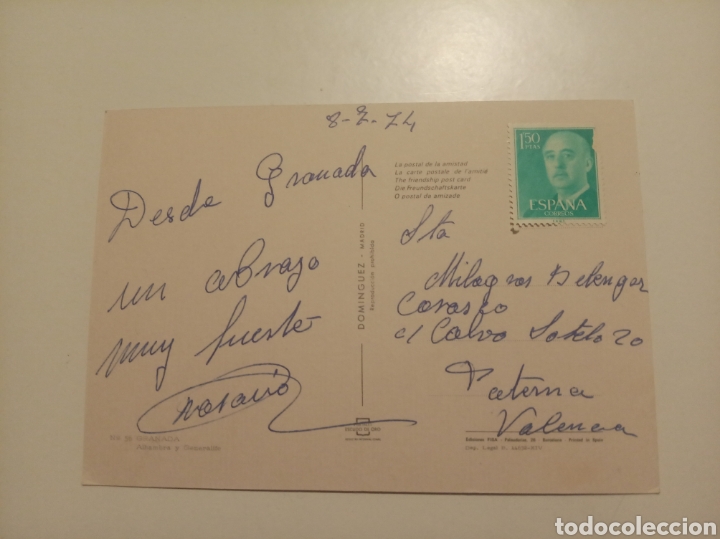 8-2-74
Desde Granada
un abrazo
muy fuerte
Rosario
La postal de la amistad
La carte postale de l'amitié
The friendship post card
Die Freundschaftskarte
O postal de amizade
DOMINGUEZ - MADRID
Reproducción prohibida
1'50
PTAS
ESPAÑA
CORREOS
Sta
Milagros Belenguer
Carasco
c/ Calvo Sotelo 20
Paterna
Valencia
GRANADA
Alhambra y Generalife
todocoleccion